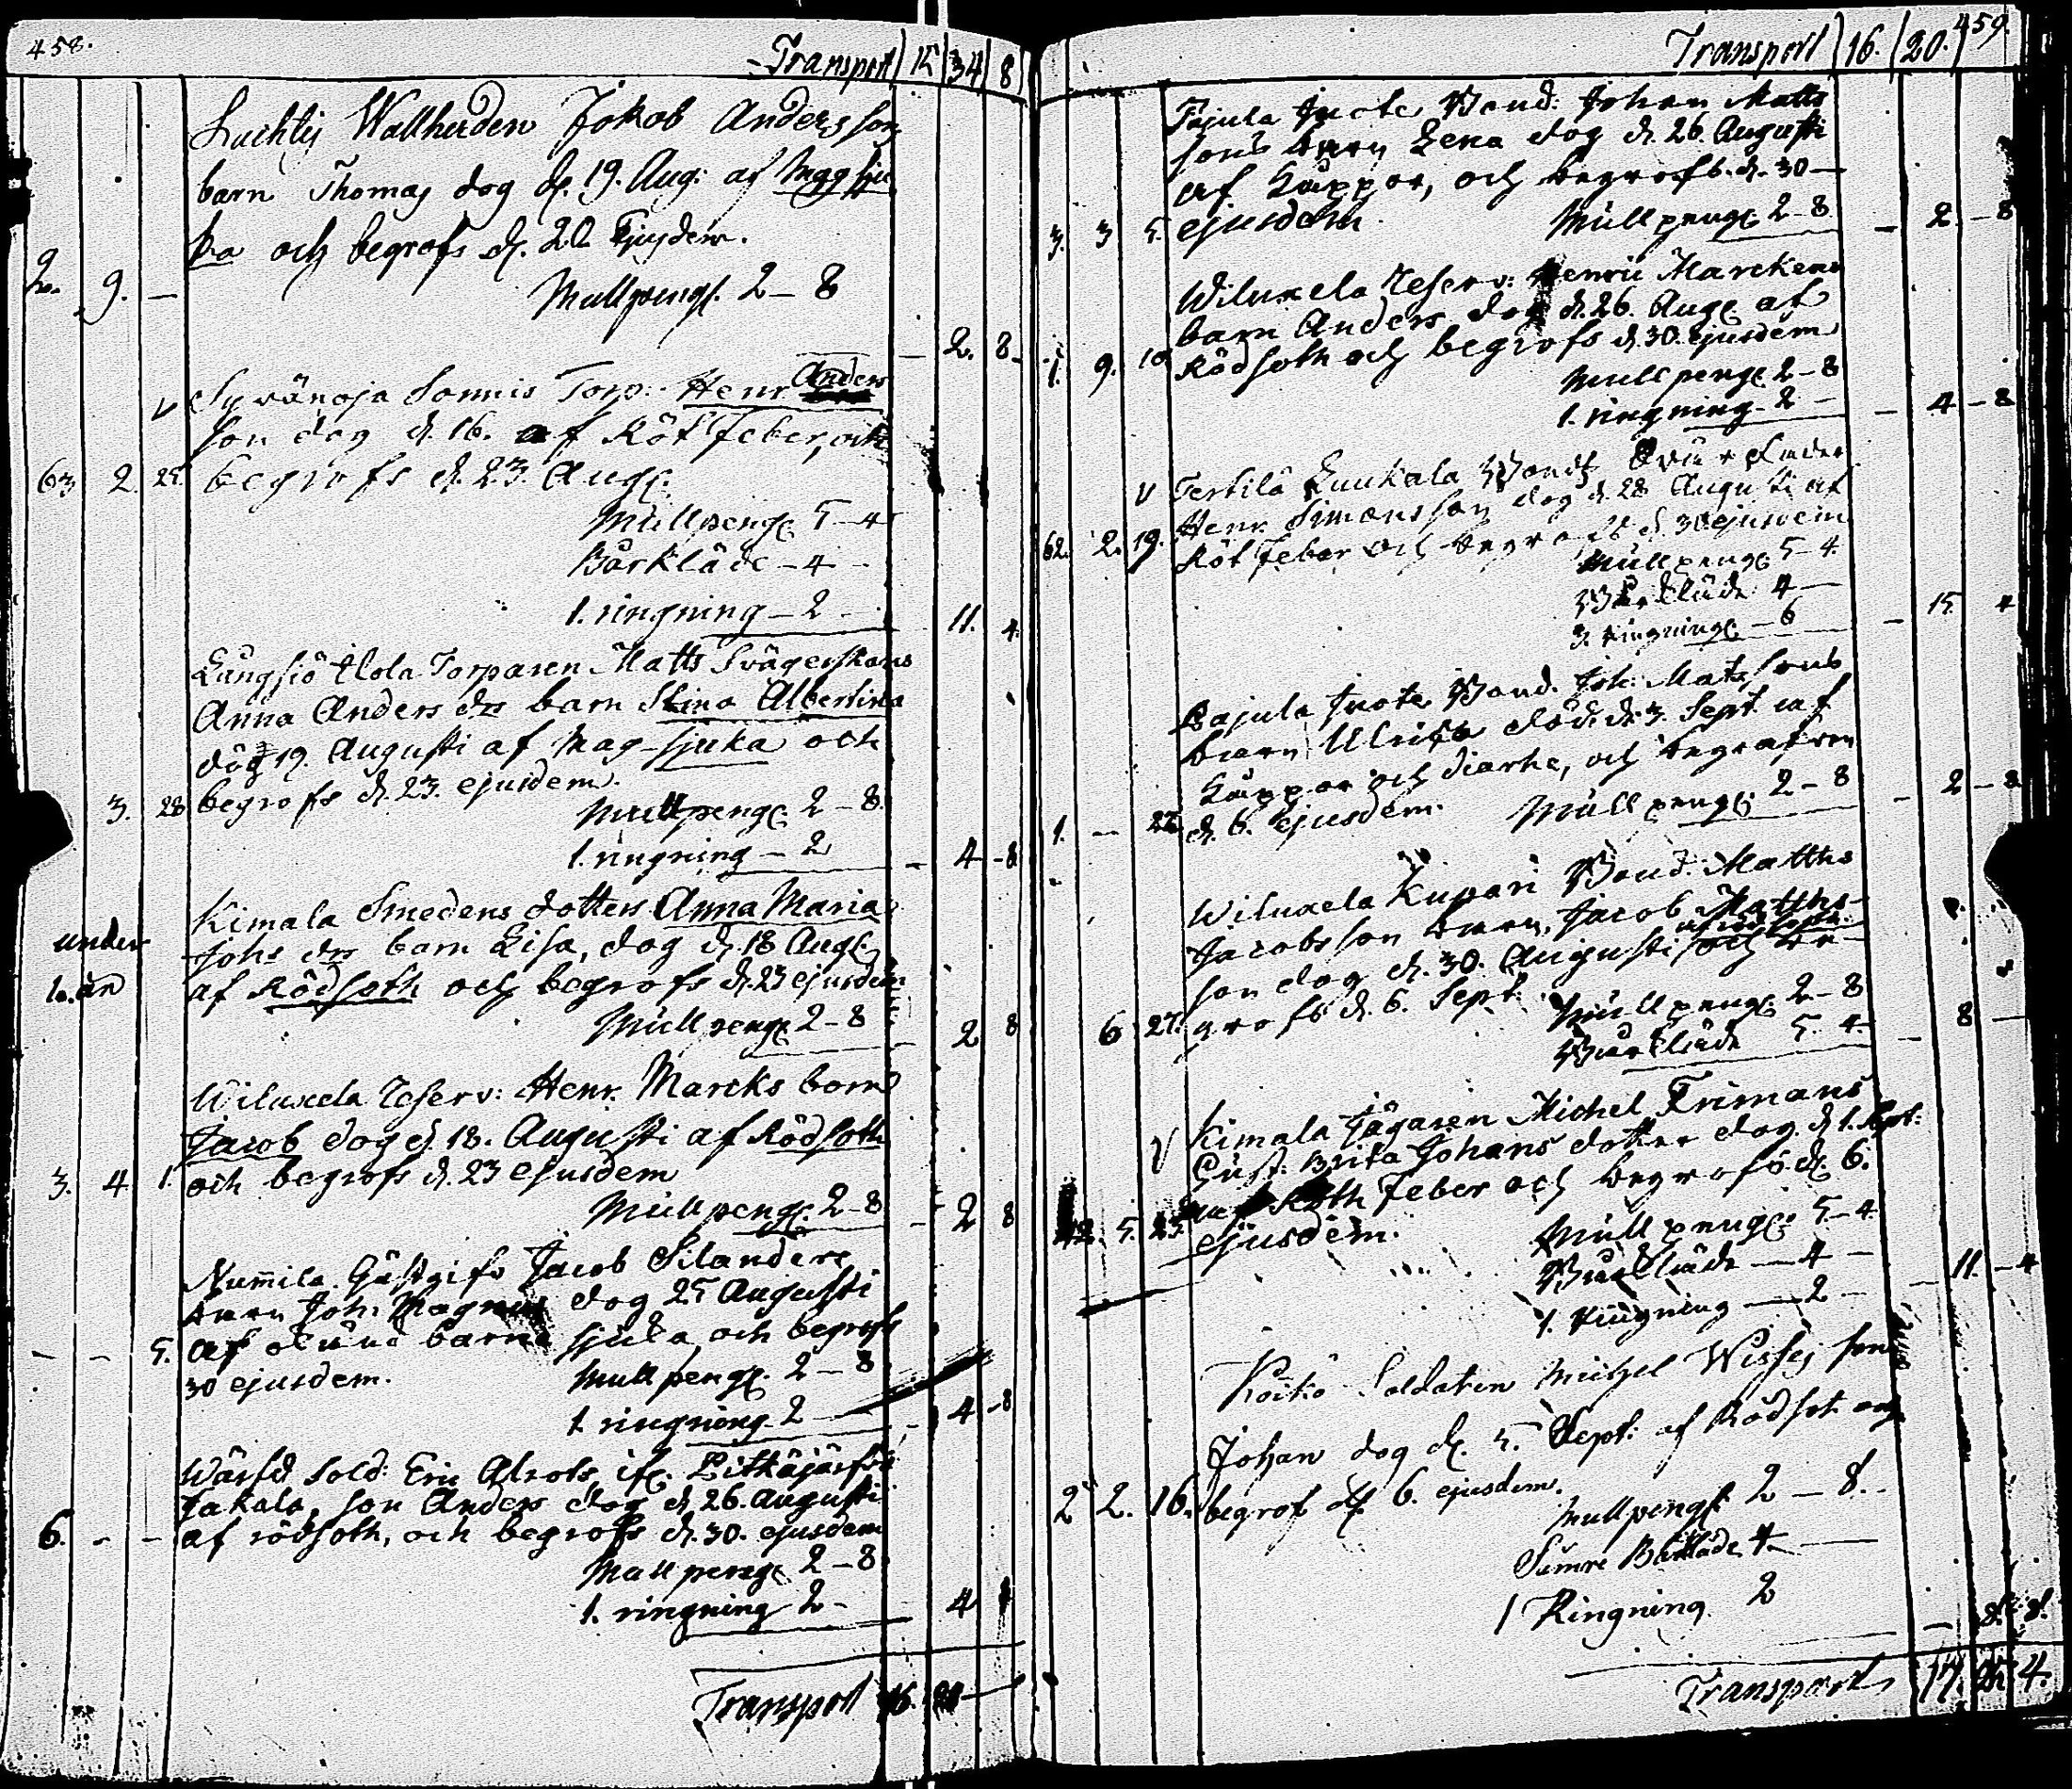 458.
Transport 15 34 8
Luchtis Wallherden Jokob Andersson
barn Thomas dog d. 19. Aug: af Magsju
ka och begrofs d. 20 Ejusdem.
2. 9. — Mullpeng. 2–8
— 2. 8.
v Syvänoja Sonnis Torp. Henr. Anders
son dog d. 16. af Röt feber, och
63 2 25. begrofs d. 23. Aug.
Mullpeng. 5–4
Bårkläde – 4 –
1. ringning – 2 – 11. 4.
Långsjö Alola Torparen Matts Svägerskans
Anna Anders drs barn Stina Albertina
dög 19. Augusti af Mag-sjuka och
3. 28 begrofs d. 23. ejusdem.
Mullpeng. 2–8.
1. ringning – 2 – 4 – 8
Kimala Smedens dotters Anna Maria
under Johs drs barn Lisa, dog d. 18 Aug.
1. år af Rödsoth och begrofs d. 23 ejusdem
Mullpeng. 2–8 – 2 8
Wiluxela Reserv: Henr. Marcks barn
Jacob dog d. 18. Augusti af Rödsoth
3. 4 1. och begrofs d. 23 ejusdem
Mullpeng. 2–8 – 2 8
Nummila Gästgifv Jacob Silanders
barn Joh: Magnus dog 25 Augusti
— — 5. af okänd barna sjuka, och begrofs
30 ejusdem. Mullpeng. 2–8
1 ringning 2 – 4 – 8
Wärfd Sold: Eric Alrots, if. Pitkäjärfvi
Jakala, son Anders dog d. 26. Augusti
6. – – af rödsoth, och begrofs d. 30. ejusdem
Mullpeng. 2–8
1. ringning 2 – 4
Transport 16. 20 —
459.
Transport 16. 20.
Pajula Juote Bond: Johan Matts
sons barn Lena dog d. 26. Augusti
af Kåppor, och begrofs. d. 30 —
3. 3 5. ejusdem. Mullpeng. 2–8 – 2 – 8
Wiluxela Reserv: Henric Marckens
barn Anders dog d. 26. Aug. af
1. 9. 10. Rödsoth och begrofs d. 30. ejusdem
Mullpeng. 2–8
1. ringning – 2 – – 4 – 8
v Tertilä Luukala Bond
Henr. Simonsson dog d. 28 Augusti af
62. 2. 19. Röt feber och begrofs d. 30 ejusdem
Mullpeng. 5–4.
Bårkläde 4 —
3. ringning. – 6 – 15 4
Pajula Juote Bond. Joh: Mats sons
barn Ulrika död. d. 3. Sept. af
Kåppor och diarhe, och begrafven
1. — 22. d. 6. Ejusdem. Mullpeng. 2–8 – 2 – 8
Wiluxela Kupari Bond: Matths
Jacobsson barn, Jacob Matths-
son dog d. 30. Augusti och be-
6 27. grofs d. 6. Sept. Mullpeng. 2–8
Bårkläde 5. 4. – 8 —
v Kimala Jägaren Michel Frimans
Hust: Brita Johans dotter dog d. 1. Sept:
af Röth feber och begrofs. d. 6.
5. 25. Ejusdem. Mullpeng. 5–4
Bårkläde — 4 —
1. Ringning — 2 – – 11. – 4
Koikö Soldaten Michel Wisses son
Johan dog d. 5. Sept: af Rödsot och
2 2. 16. begrof d. 6. ejusdem.
Mullpeng. 2 — 8.
Sämre Bårkläde 4 —
1 Ringning 2
— 8. 8.
Transport 17. 4.